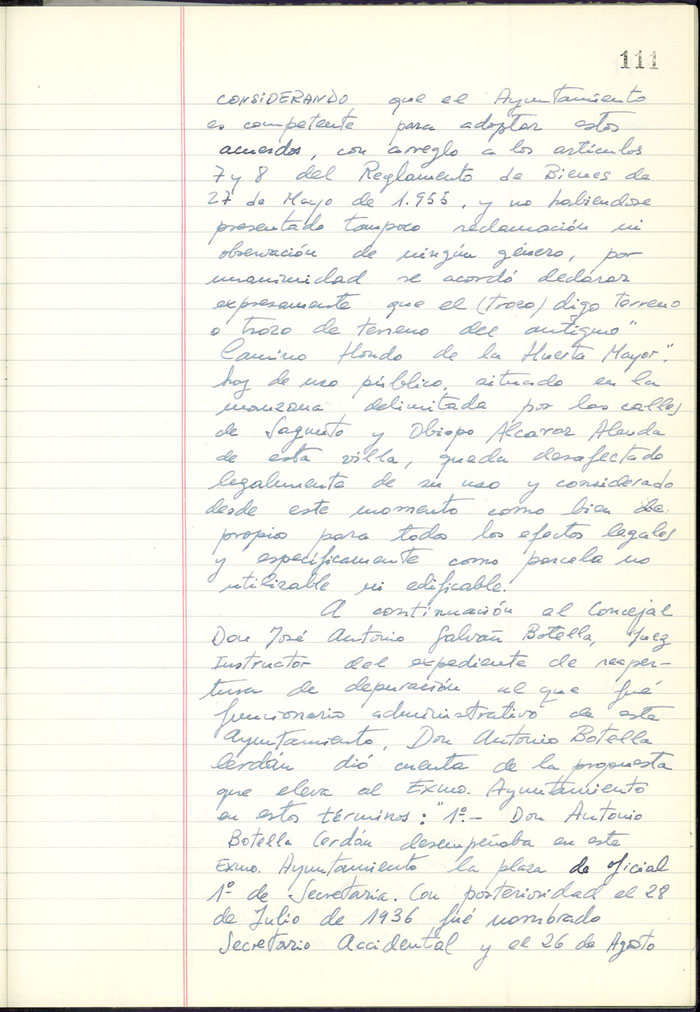 111
CONSIDERANDO que el Ayuntamiento
es competente para adoptar estos
acuerdos, con arreglo a los artículos
7 y 8 del Reglamento de Bienes de
27 de Mayo de 1.955, y no habiendose
presentado tampoco reclamación ni
observación de ningún género, por
unanimidad se acordó declarar
expresamente que el (trozo) digo terreno
o trozo de terreno del antiguo "
Camino Hondo de la Huerta Mayor".
hoy de uso público, situado en la
manzana delimitada por las calles
de Sagunto y Obispo Alcaraz Alenda
de esta villa, queda desafectado
legalmente de su uso y considerado
desde este momento como bien de
propios para todos los efectos legales
y especificamente como parcela no
utilizable ni edificable.
A continuación el Concejal
Don José Antonio Galvañ Botella, Juez
Instructor del expediente de reaper-
tura de depuración al que fué
funcionario administrativo de este
Ayuntamiento, Don Antonio Botella
Cerdán dió cuenta de la propuesta
que eleva al Exmo. Ayuntamiento
en estos términos: "1º.- Don Antonio
Botella Cerdán desempeñaba en este
Exmo. Ayuntamiento la plaza de oficial
1º de Secretaria. Con posterioridad el 28
de Julio de 1936 fué nombrado
Secretario Accidental y el 26 de Agosto